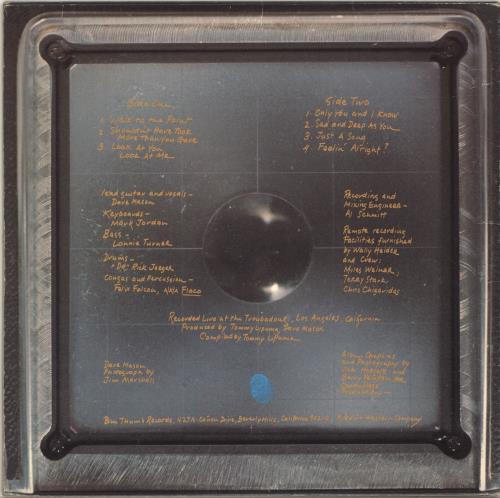 Side One
1. Walk to the Point
2. Shouldn't Have Took
More Than You Gave
3. Look At You
Look At Me
Side Two
1. Only You and I Know
2. Sad and Deep As You
3. Just A Song
4. Feelin' Alright?
lead guitar and vocals -
Dave Mason
Keyboards -
Mark Jordan
Bass -
Lonnie Turner
Drums -
"Dr." Rick Jaeger
Congas and Percussion -
Felix Falcon, AKA Flaco
Recording and
Mixing Engineer -
Al Schmitt
Remote recording
facilities furnished
by Wally Heider
and Crew:
Miles Weiner,
Terry Stark,
Chris Chigaridas
Recorded Live at the Troubadour, Los Angeles, California
Produced by Tommy Lipuma, Dave Mason
Compiled by Tommy LiPuma
Dave Mason
Photograph by
Jim Marshall
Album Graphics
and Photography by
Barry
Blue Thumb Records, 427 N. Cañon Drive, Beverly Hills, California 90210, Western Company